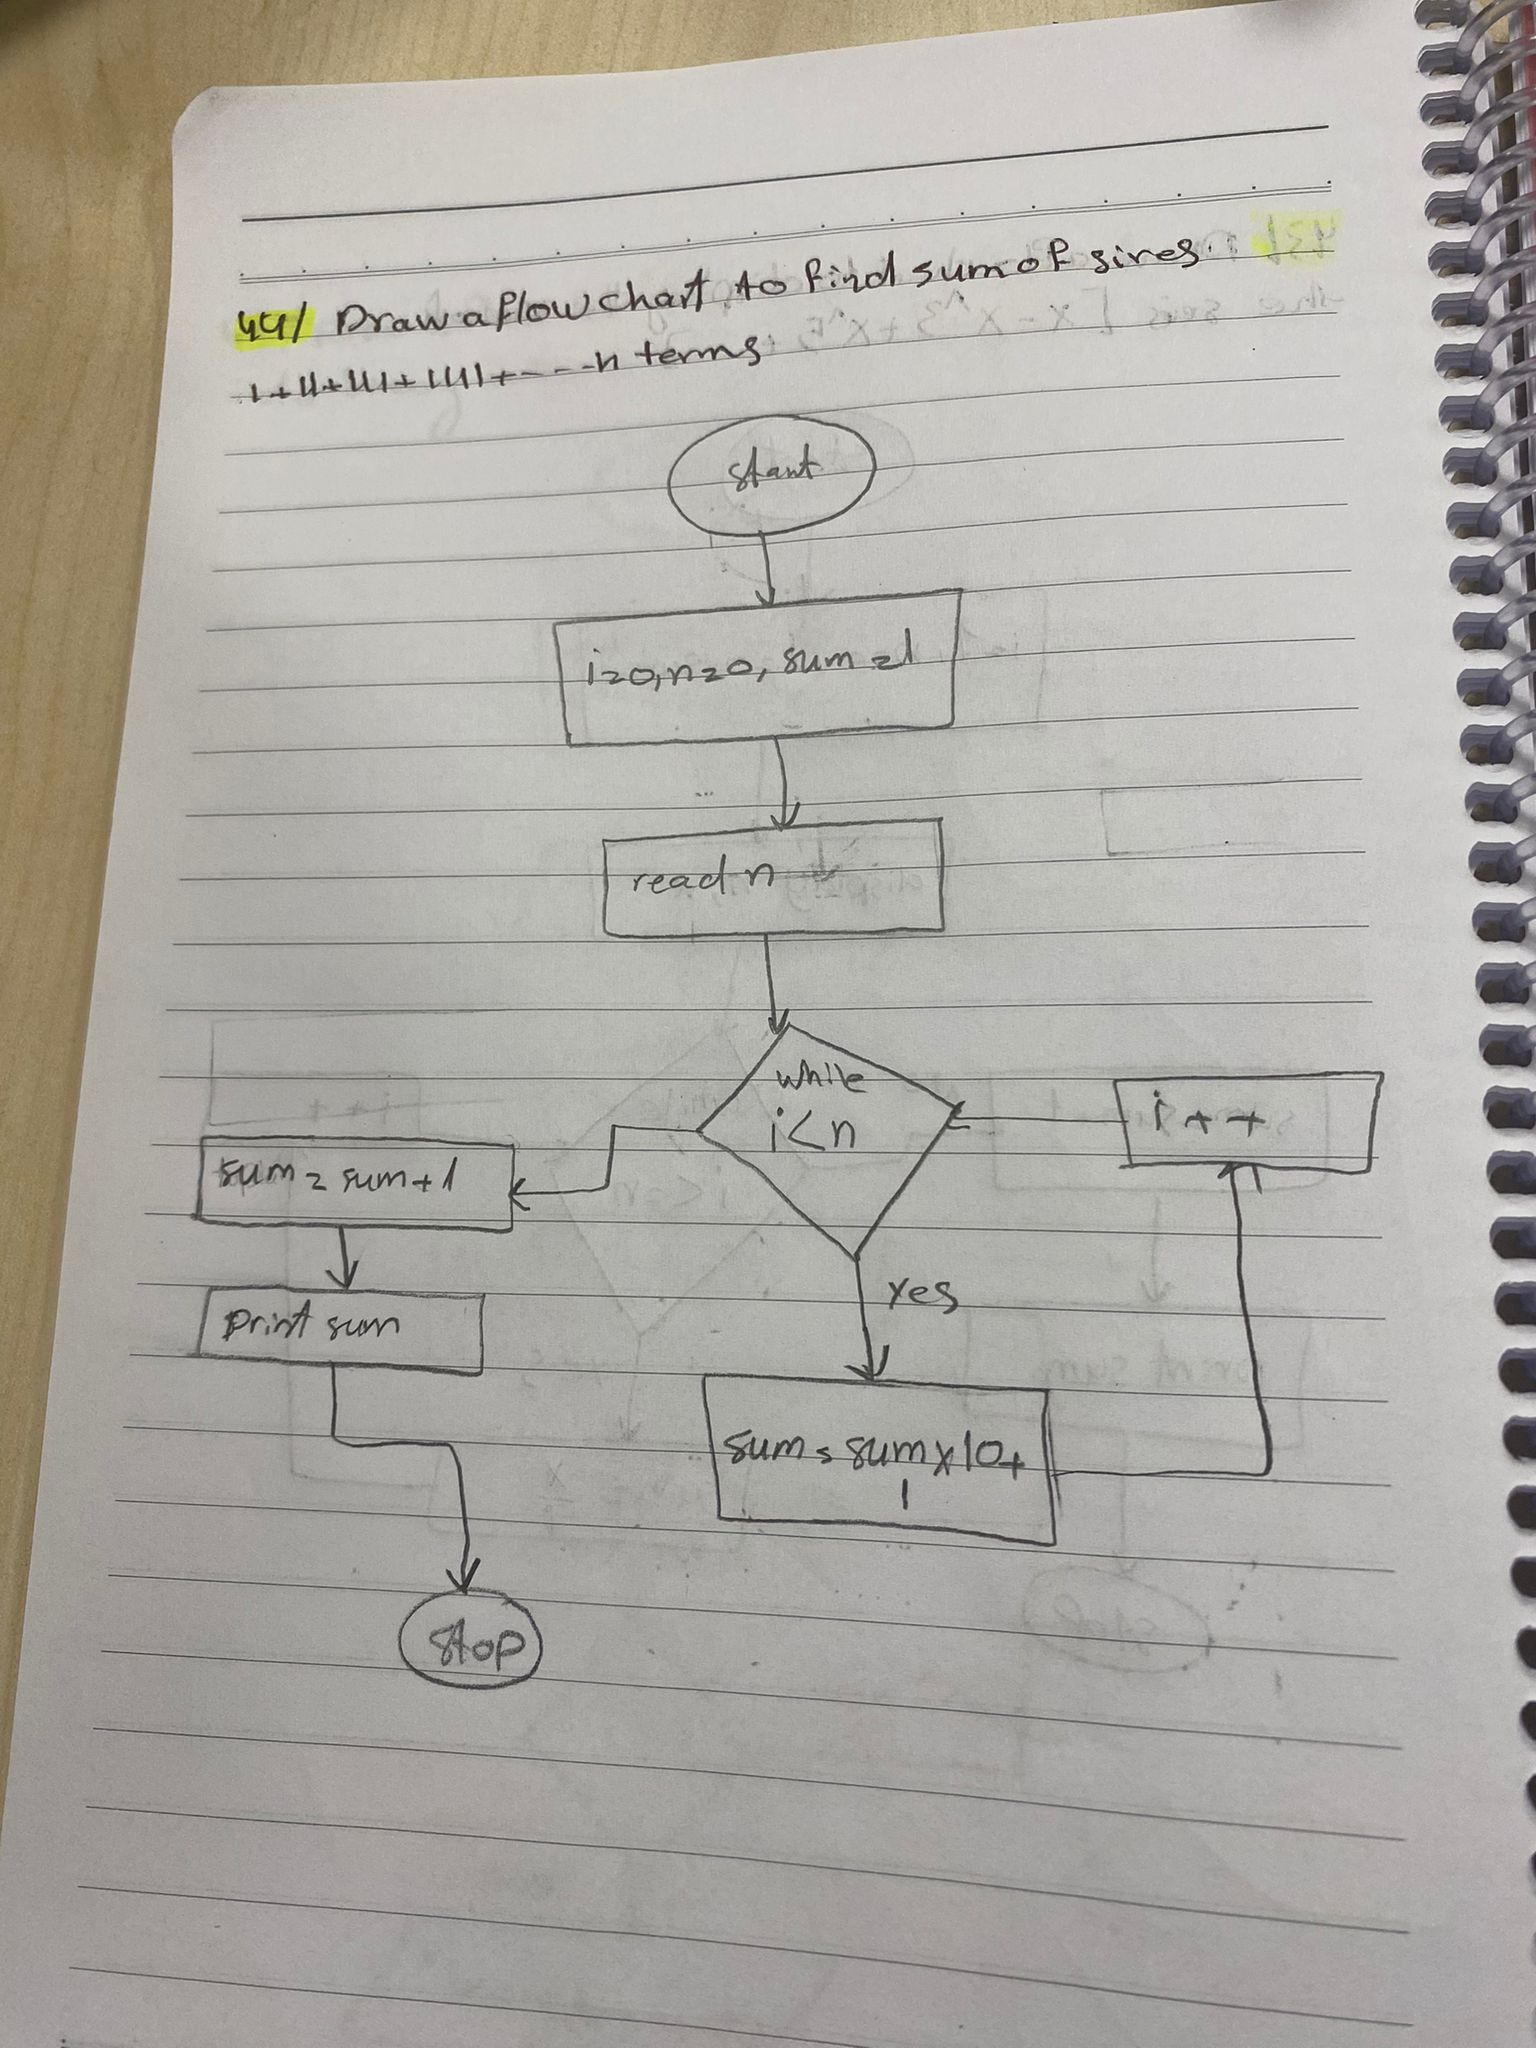 44/ Draw a flow chart to find sum of sires.
1+11+111+1111+----n terms
start
i=0,n=0, sum=1
read n
while
i<n
i++
sum=sum+1
Yes
print sum
sum=sum×10+
1
stop